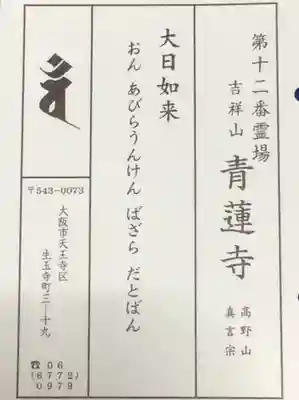 第十二番霊場
吉祥山 青蓮寺 高野山
真言宗
大日如来
おん あびらうんけん ばざら だとばん
〒543-0073
大阪市天王寺区
生玉寺町三ー十九
☎06
(6772)
0979